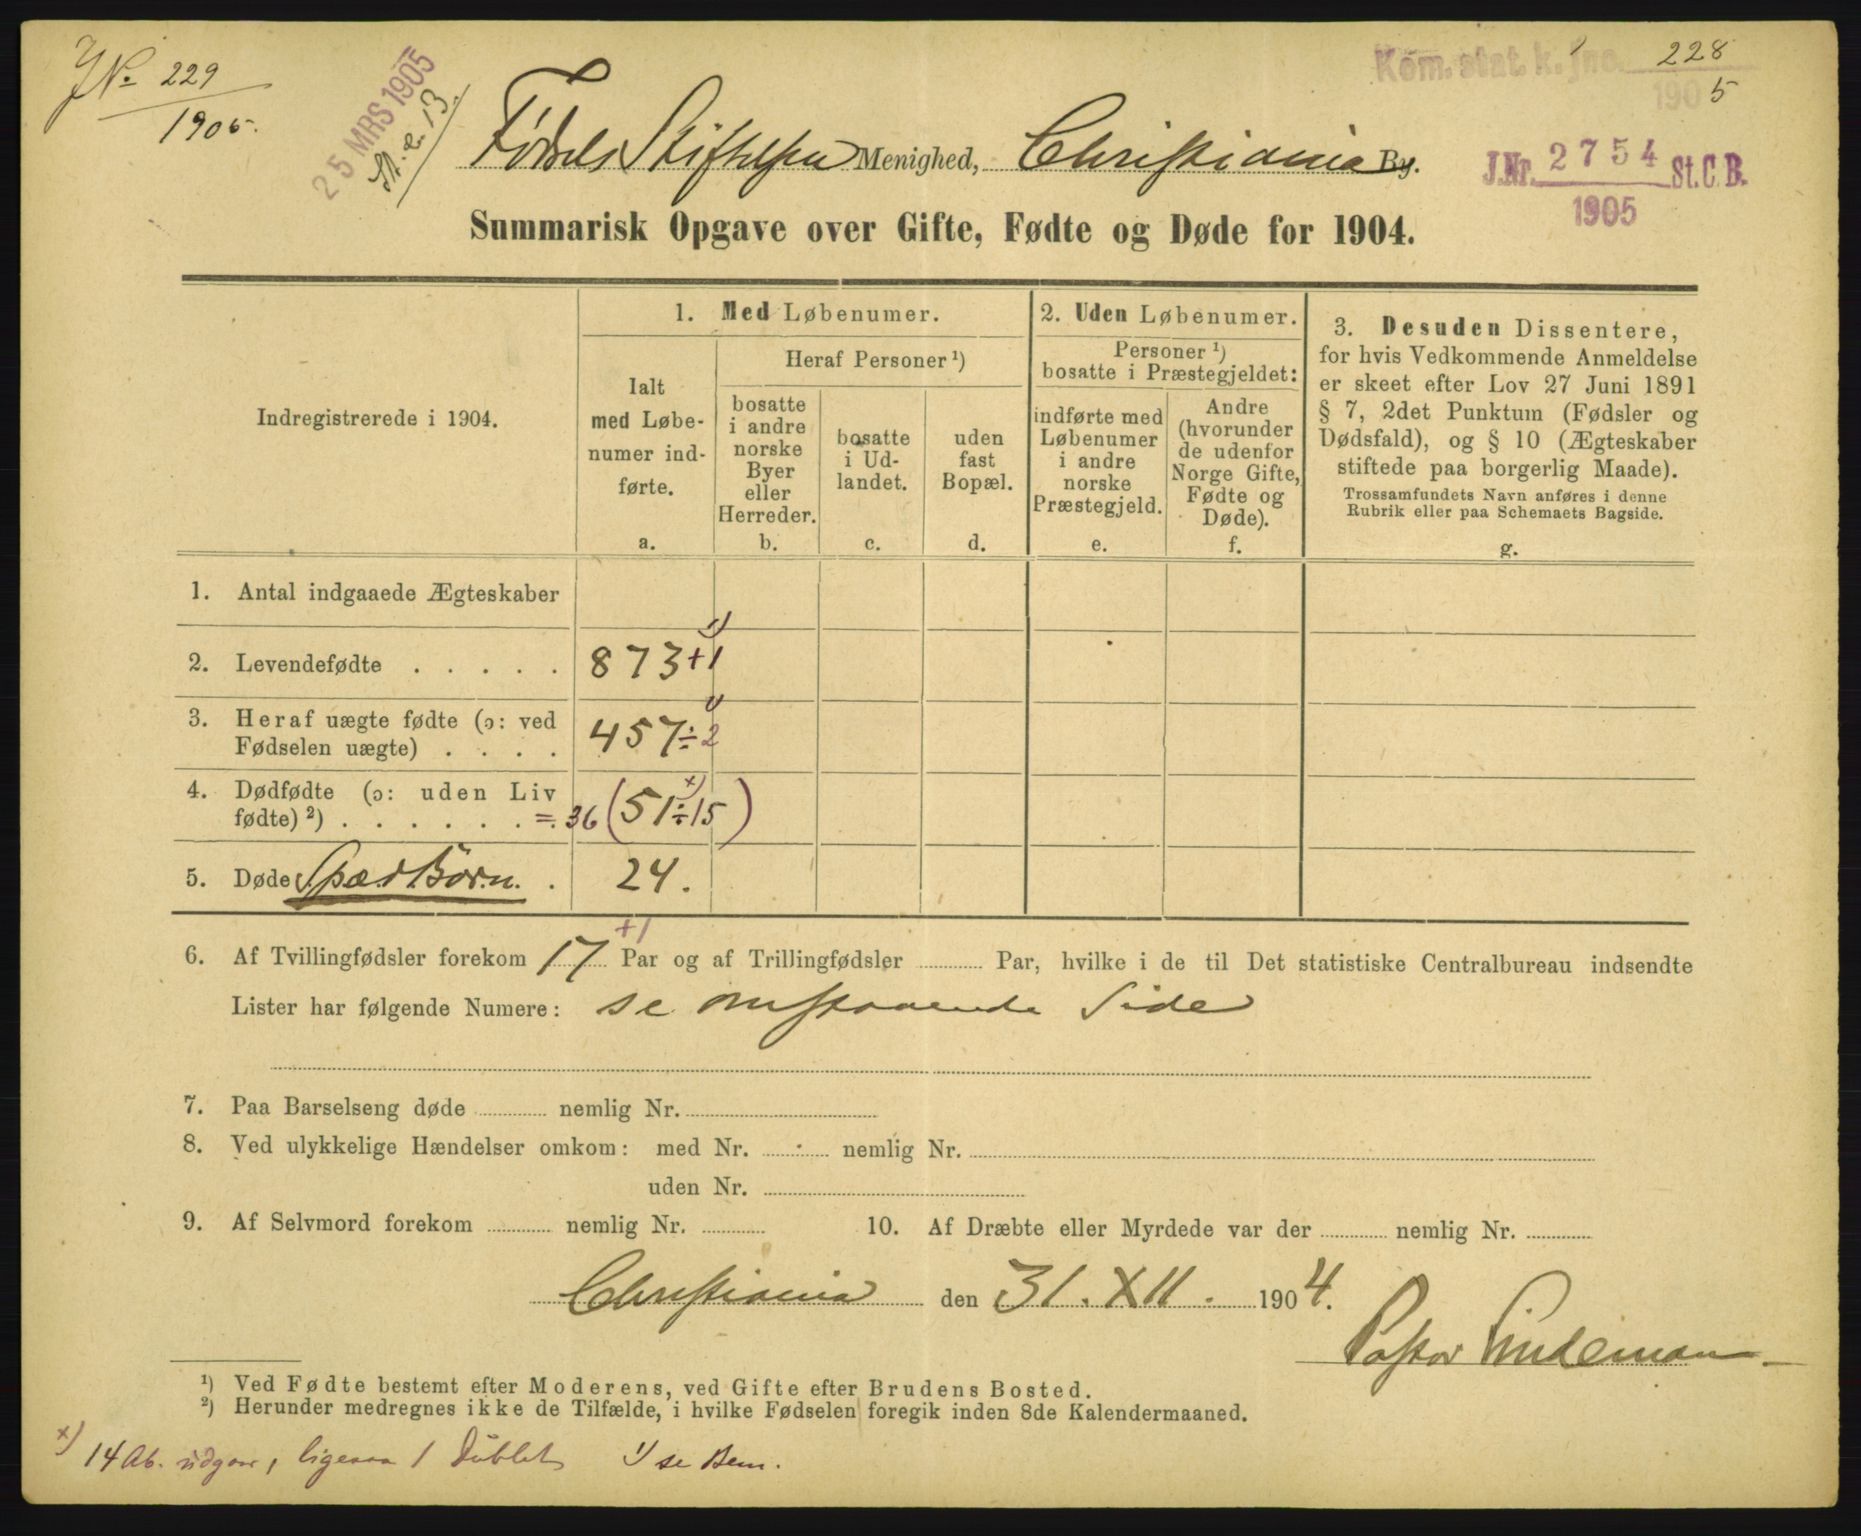 JNo 229
1905.
25 MRS 1905
Kom. stat. k. jno. 228
1905
Fødsels Stiftelsen Menighed, Christiania By.
J.Nr. 2754 St.C.B.
1905
Summarisk Opgave over Gifte, Fødte og Døde for 1904.
Indregistrerede i 1904.
1. Med Løbenumer.
Ialt
med Løbe-
numer ind-
førte.
a.
Heraf Personer ¹)
bosatte
i andre
norske
Byer
eller
Herreder.
b.
bosatte
i Ud-
landet.
c.
uden
fast
Bopæl.
d.
2. Uden Løbenumer.
Personer ¹)
bosatte i Præstegjeldet:
indførte med
Løbenumer
i andre
norske
Præstegjeld.
e.
Andre
(hvorunder
de udenfor
Norge Gifte,
Fødte og
Døde).
f.
3. Desuden Dissentere,
for hvis Vedkommende Anmeldelse
er skeet efter Lov 27 Juni 1891
§ 7, 2det Punktum (Fødsler og
Dødsfald), og § 10 (Ægteskaber
stiftede paa borgerlig Maade).
Trossamfundets Navn anføres i denne
Rubrik eller paa Schemaets Bagside.
g.
1. Antal indgaaede Ægteskaber
2. Levendefødte . . . . . 873 +1 ¹)
3. Heraf uægte fødte (ɔ: ved
Fødselen uægte) . . . . 457 ÷ 2 ¹)
4. Dødfødte (ɔ: uden Liv
fødte) ²) . . . . . . = 36 (51 ÷ 15 ˣ))
5. Døde Spædbørn. . 24.
+1
6. Af Tvillingfødsler forekom 17 Par og af Trillingfødsler ........ Par, hvilke i de til Det statistiske Centralbureau indsendte
Lister har følgende Numere: se omstaaende Side
7. Paa Barselseng døde ........ nemlig Nr. ........
8. Ved ulykkelige Hændelser omkom: med Nr. ........ nemlig Nr. ........
uden Nr. ........
9. Af Selvmord forekom ........ nemlig Nr. ........ 10. Af Dræbte eller Myrdede var der ........ nemlig Nr. ........
Christiania den 31. XII. 1904.
Pastor Lindeman
¹) Ved Fødte bestemt efter Moderens, ved Gifte efter Brudens Bosted.
²) Herunder medregnes ikke de Tilfælde, i hvilke Fødselen foregik inden 8de Kalendermaaned.
ˣ) 14 Ab. udgaar, ligesaa 1 Dublet ¹) se Bem.